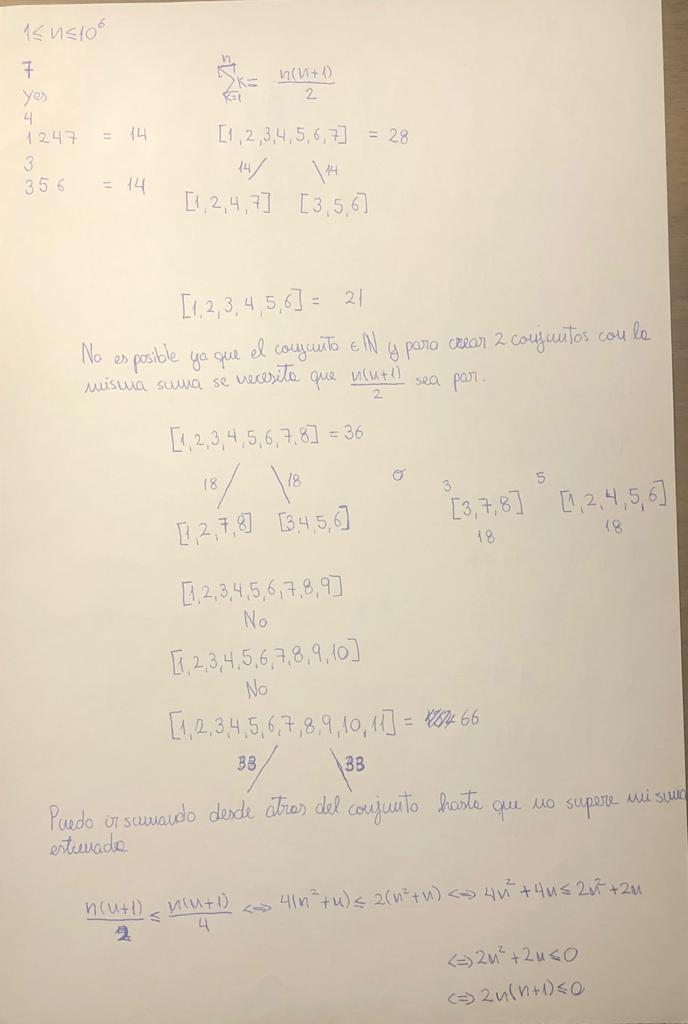 1 ≤ n ≤ 10⁶
7
yes
4
1 2 4 7 = 14
3
3 5 6 = 14
n
∑ k = n(n+1)/2
k=1
[1,2,3,4,5,6,7] = 28
14 14
[1,2,4,7] [3,5,6]
[1,2,3,4,5,6] = 21
No es posible ya que el conjunto ∈ ℕ y para crear 2 conjuntos con la
misma suma se necesita que n(n+1)/2 sea par.
[1,2,3,4,5,6,7,8] = 36
18 18
[1,2,7,8] [3,4,5,6] o 3 [3,7,8] 5 [1,2,4,5,6]
18 18
[1,2,3,4,5,6,7,8,9]
No
[1,2,3,4,5,6,7,8,9,10]
No
[1,2,3,4,5,6,7,8,9,10,11] = 66
33 33
Puedo ir sumando desde atras del conjunto hasta que no supere mi suma
estimada
n(n+1)/2 ≤ n(n+1)/4 <=> 4(n²+n) ≤ 2(n²+n) <=> 4n²+4n ≤ 2n²+2n
<=> 2n²+2n ≤ 0
<=> 2n(n+1) ≤ 0